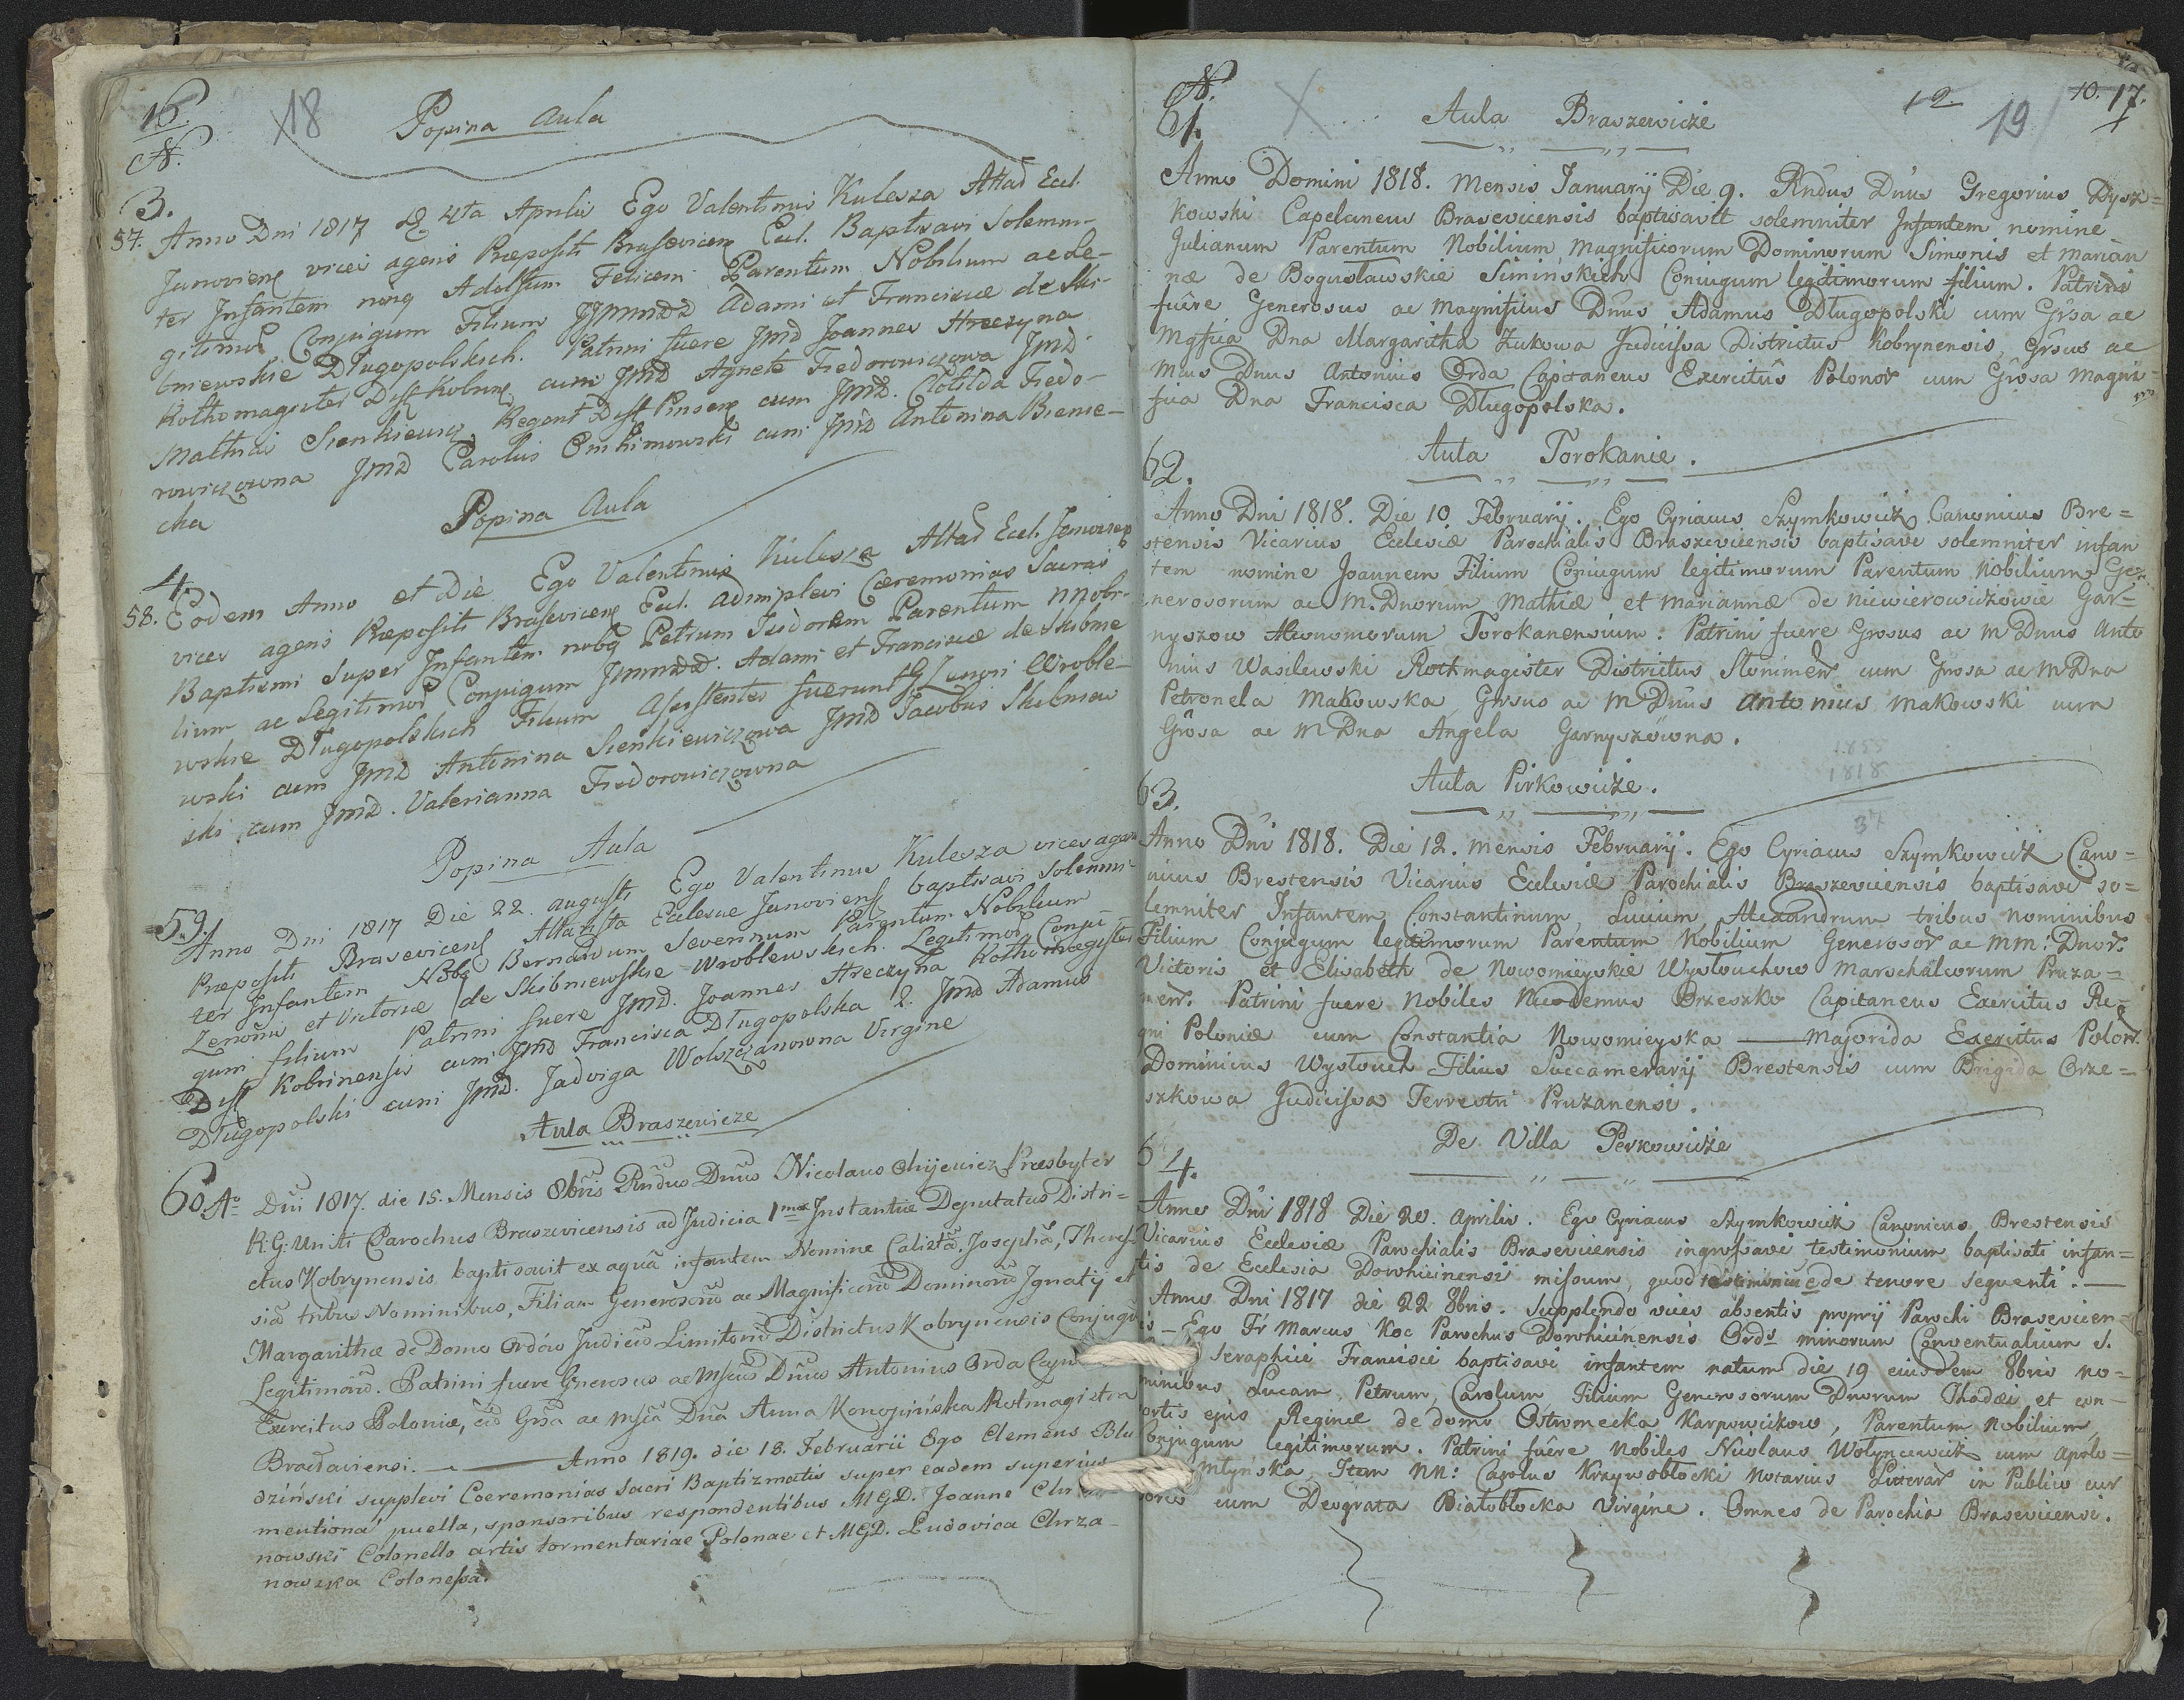 16.
18
N.
Popina Aula
3.
57. Anno Dni 1817 4ta Aprilis Ego Valentinus Kulesza Altad Eccl.
Janoviens vices agens Præpositi Brasevicens Eccl. Baptisavi Solemni-
ter Infantem nomq Adolfum Felicem Parentum Nobilium ac Le-
gitimor Conjugum Filium Adami et Franciscæ de Ski-
bniewskie Długopolskich. Patrini fuere Jmd Joannes Hreczyna
Rothomagister Dist Kobrins cum Jmd Agnete Fiedorowiczowa Jmd
Mathias Sienkiewicz Regent Dist Pinsens cum Jmd. Clotilda Fiedo-
rowiczowna Jmd Carolus Omhimowski cum Jmd Antonina Bienie-
cka
Popina Aula
4.
58. Eodem Anno et Die Ego Valentinus Kulesza Altad Eccl. Janoviens
vices agens Præpositi Brasevicens Eccl. adimplevi Cæremonias Sacras
Baptismi Super Infantem nobq Petrum Isidorem Parentum nnobi-
lium ac Legitimor Conjugum Adami et Franciscæ de Skibnie
wskie Długopolskich Filium Assistentes fuerunt Zenon Wroble-
wski cum Jmd Antonina Sienkiewiczowa Jmd Jacobus Skibniew
ski cum Jmd. Valerianna Fiedorowiczowna
Popina Aula
59. Anno Dni 1817 Die 22 augusti Ego Valentinus Kulesza vices agens
Præpositi Brasevicens Altarista Ecclesiæ Janoviens baptisavi Solemni-
ter Infantem Nobq Bernardum Severinum Parentum Nobilium
Zenonis et Victoriæ de Skibniewskie Wroblewskich. Legitimor Conju-
gum filium Patrini fuere Jmd. Joannes Hreczyna Rothomagister
Dist Kobrinensis cum Jmd Francisca Długopolska 2. Jmd Adamus
Długopolski cum Jmd. Jadviga Wolszczanowna Virgine
Aula Braszewicze
60. Ao Dni 1817. die 15. Mensis 8bris Rndus Dnus Nicolaus Chijewicz Præsbyter
R: G: Uniti Parochus Braszevicensis ad Judicia 1mæ Instantiæ Deputatus Distri=
ctus Kobrynensis baptisavit ex aquâ infantem Nomine Calixtã, Josephã, There-
siã tribus Nominibus, Filiam Generosorũ ac Magnificorũ Dominorũ Ignatij et
Margarithæ de Domo Ordów Judicũ Limitorũ Districtus Kobrynensis Conjugũ
Legitimorũ. Patrini fuere Gnerosus ac Mfcus Dnus Antonius Orda
Exercitus Poloniæ, cũ Grsã ac Mfcã Dnã Anna Konopińska Rotmagistra
Bracłaviensi. — Anno 1819. die 18. Februarii Ego Clemens Blu
dziński supplevi Coeremonias Sacri Baptizmatis super eadem superius
mentiona puella, sponsoribus respondentibus MGD. Joanne
nowski Colonello artis tormentariae Polonae et MGD. Ludovica Chrza-
nowska Colonessã.
N.
61.
Aula Braszewicze
12
19
10. 17.
Anno Domini 1818. Mensis Januarij Die 9. Rndus Dnus Gregorius Dysz=
kowski Capelaneus Brasevicensis baptisavit solemniter Infantem nomine
Julianum Parentum Nobilium Magnificorum Dominorum Simonis et Marian
næ de Bogusławskie Simińskich Coniugum legitimorum filium. Patrini
fuêre Generosus ac Magnificus Dnus Adamus Długopolski cum Grsa ac
Mgfica Dna Margaritha Zukowa Judicissa Districtus Kobrynensis, Grsus ac
Mcus Dnus Antonius Orda Capitaneus Exercitûs Polonor cum Grosa Magni-
fica Dna Francisca Długopolska.
Aula Torokanie.
62.
Anno Dni 1818. Die 10 Februarij. Ego Cyriacus Szymkowicz Canonicus Bre=
stensis Vicarius Ecclesiæ Parochialis Braszevicensis baptisavi solemniter infan
tem nomine Joannem Filium Coniugum legitimorum Parentum Nobilium Ge=
nerosorum ac M. Dnorum Mathiæ et Mariannæ de Niewierowiczowie Gar=
nyszow Œconomorum Torokanensium. Patrini fuere Grosus ac M Dnus Anto
nius Wasilewski Rothmagister Districtus Słonimen cum Grosa ac M Dna
Petronela Makowska Grsus ac M Dnus Antonius Makowski cum
Grosa ac M Dna Angela Garnyszówna.
1855
1818
37
Aula Pirkowicze.
63.
Anno Dni 1818. Die 12. Mensis Februarij. Ego Cyriacus Szymkowicz Cano=
nicus Brestensis Vicarius Ecclesiæ Parochialis Braszevicensis baptisavi so=
lemniter Infantem Constantinum Lucium Alexandrum tribus nominibus
Filium Conjugum legitimorum Parentum Nobilium Generosor ac MM: Dnor.
Victoris et Elisabeth de Nowomieyskie Wysłouchow Marschalcorum Pruza=
nen. Patrini fuere Nobiles Nicodemus Brzeszko Capitaneus Exercitus Re=
gni Poloniæ cum Constantia Nowomieyska — Majorida Exercitus Polon.
Dominicus Wysłouch Filius Succamerarij Brestensis cum Brigida Orze=
szkowa Judicissa Terrestri Pruzanensi.
De Villa Perkowicze
64.
Anno Dni 1818 Die 20. Aprilis. Ego Cyriacus Szymkowicz Canonicus Brestensis
Vicarius Ecclesiæ Parochialis Brasevicensis ingrossavi testimonium baptisati infan=
tis de Ecclesia Dorohicinensi missum, quod testimonium de tenore sequenti. —
Anno Dni 1817 die 22 8bris. Supplendo vices absentis proprij Parochi Brasevicen=
is — Ego Fr Marcus Koc Parochus Dorohicinensis Ords minorum Conventualium S.
Seraphici Francisci baptisavi infantem natum die 19 eiusdem 8bris no=
minibus Lucam, Petrum, Carolum Filium Generosorum Dnorum Thadæi et con-
ortis ejus Reginæ de domo Ostromecka Karpowiczow, Parentum Nobilium,
Conjugum legitimorum. Patrini fuêre Nobiles Nicolaus Wołyncewicz cum Apolo=
Młyńska, Item NN: Carolus Krzywobłocki Notarius Literar in Publico cur
cum Deograta Białobłocka Virgine. Omnes de Parochia Brasevicensi.